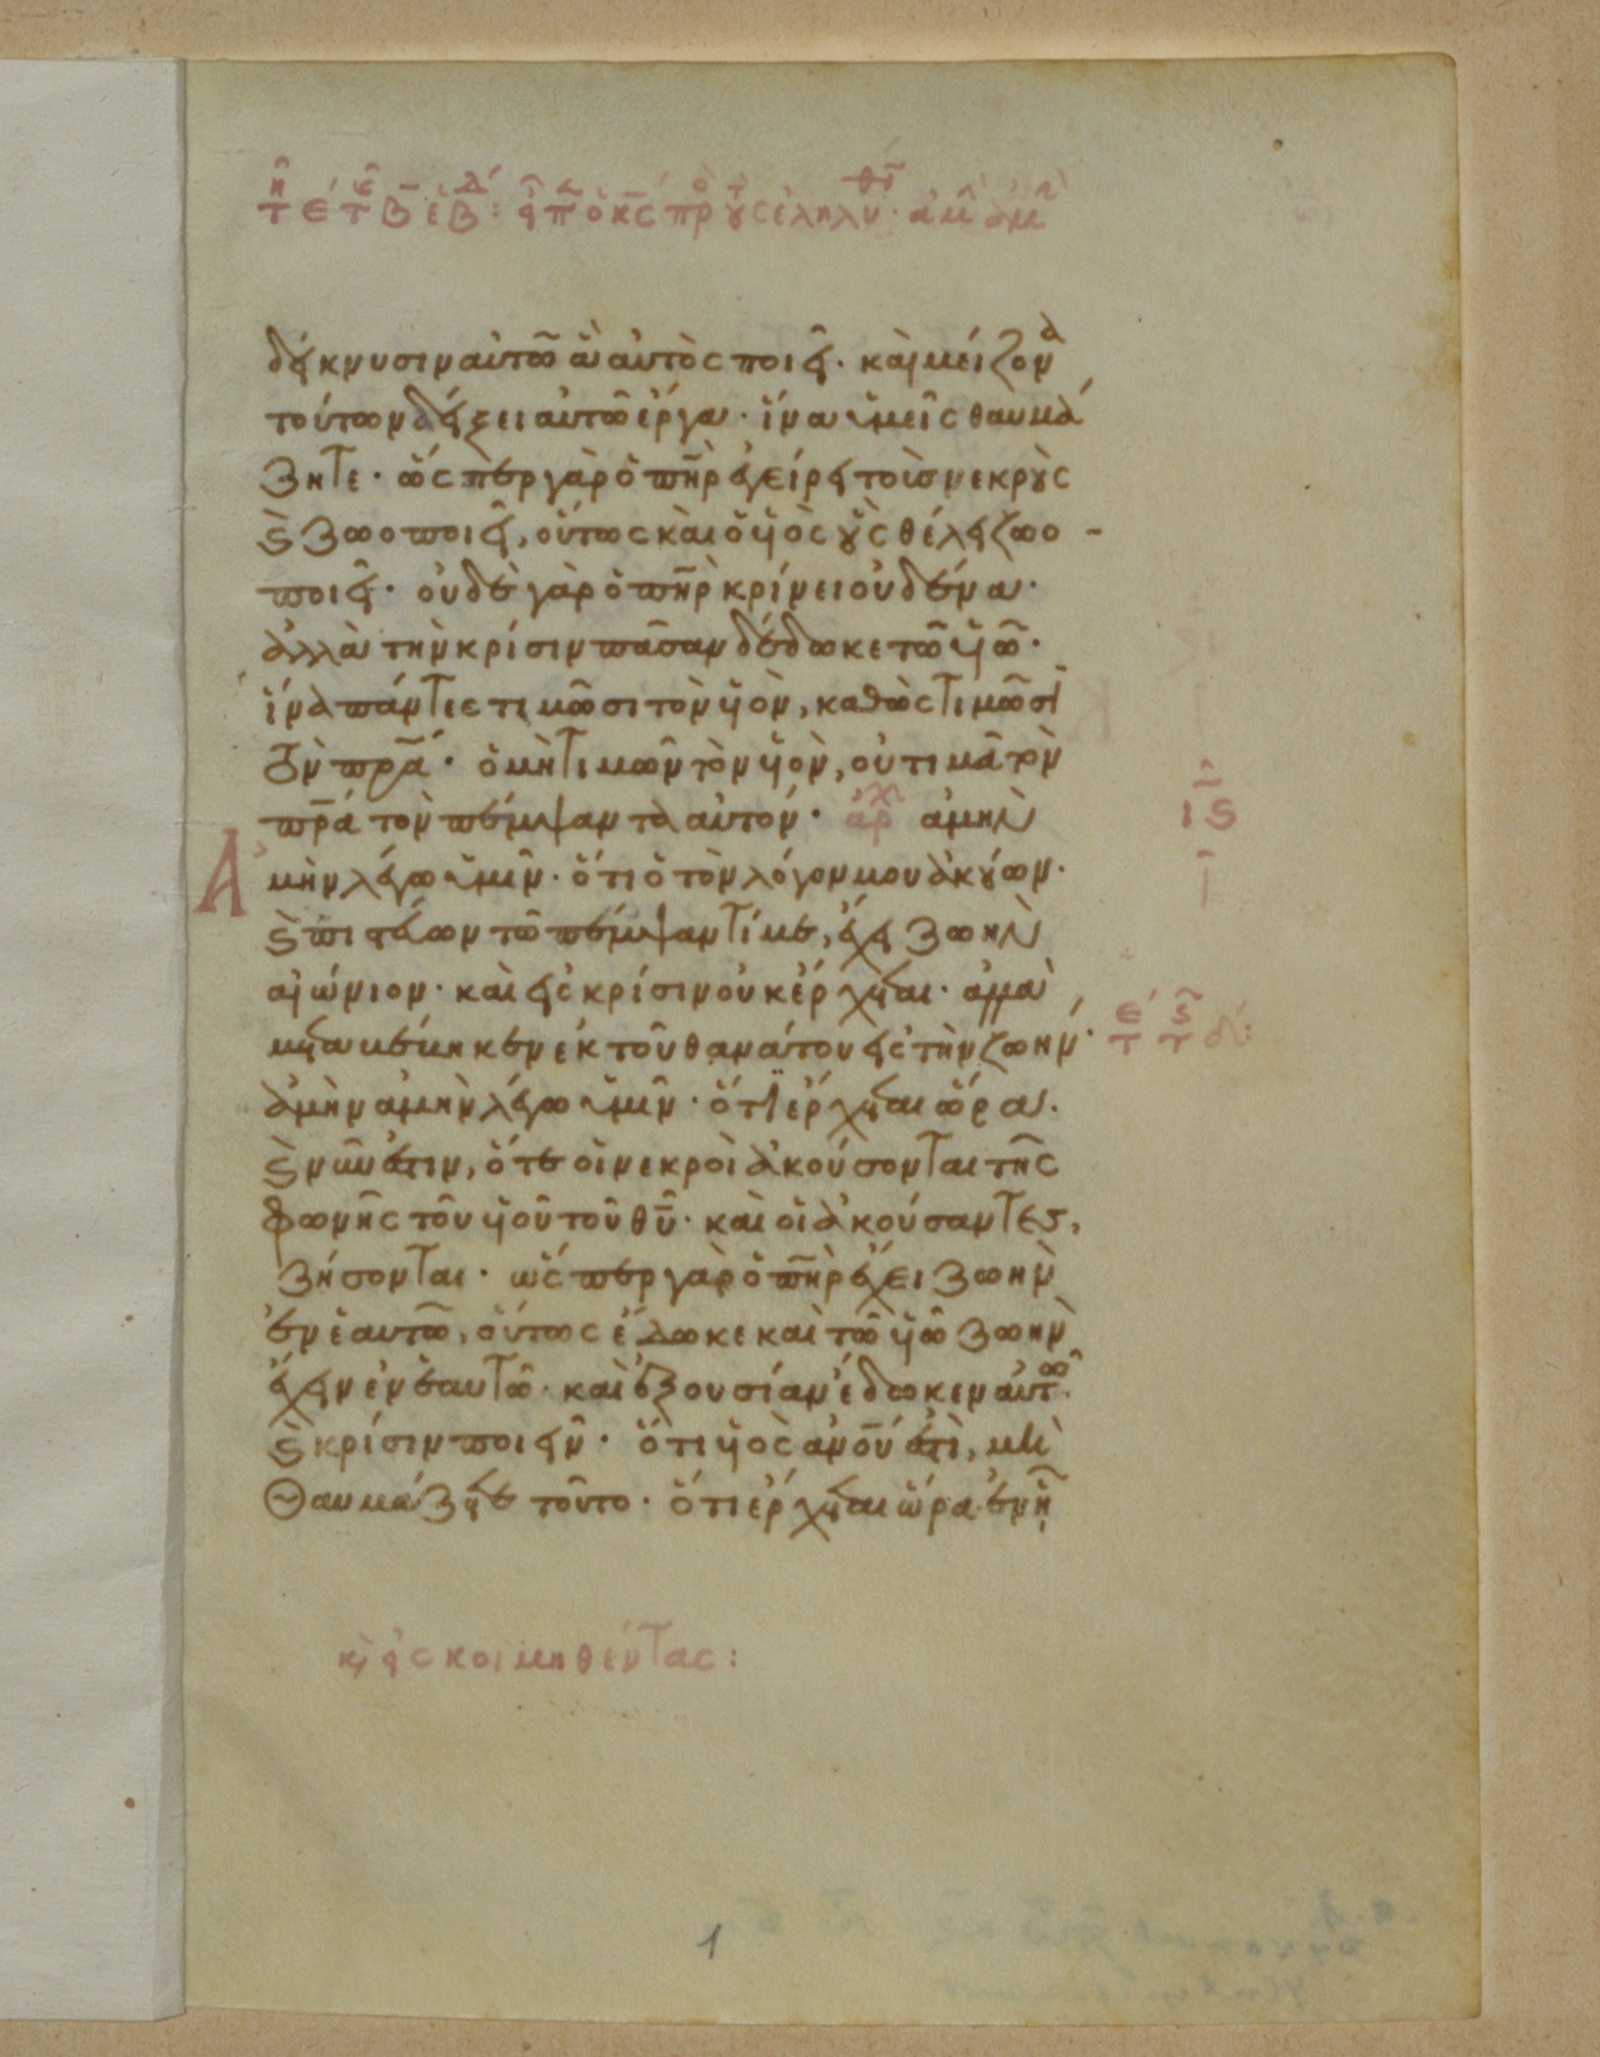 τῆ ε τῆς β ἑβδ: εἶπεν ὁ κς πρὸς τοὺς ἐληλυθότ· ἀμὴν ἀμὴν
δείκνυσιν αὐτῶ ἃ αὐτὸς ποιεῖ· καὶ μείζονα
τούτων δείξει αὐτῶ ἔργα· ἵνα ὑμεῖς θαυμά
ζητε· ὥσπερ γὰρ ὁ πηρ ἐγείρει τοὺς νεκροὺς
καὶ ζωοποιεῖ, οὕτως καὶ ὁ υἱὸς οὓς θέλει ζωο-
ποιεῖ· οὐδὲ γὰρ ὁ πηρ κρίνει οὐδένα·
ἀλλὰ τὴν κρίσιν πᾶσαν δέδωκε τῶ υἱῶ·
ἵνα πάντες τιμῶσι τὸν υἱὸν, καθὼς τιμῶσι
τὸν πρα· ὁ μὴ τιμῶν τὸν υἱὸν, οὐ τιμᾶ τὸν
πρα τὸν πέμψαντα αὐτόν· ἀρχ ἀμὴν
ἀμὴν λέγω ὑμῖν· ὅτι ὁ τὸν λόγον μου ἀκούων·
καὶ πιστεύων τῶ πέμψαντί με, ἔχει ζωὴν
αἰώνιον· καὶ εἰς κρίσιν οὐκ ἔρχεται· ἀλλὰ
μεταβέβηκεν ἐκ τοῦ θανάτου εἰς τὴν ζωήν·
ἀμὴν ἀμὴν λέγω ὑμῖν· ὅτι ἔρχεται ὥρα·
καὶ νῦν ἐστιν, ὅτε οἱ νεκροὶ ἀκούσονται τῆς
φωνῆς τοῦ υἱοῦ τοῦ θυ· καὶ οἱ ἀκούσαντες,
ζήσονται· ὥσπερ γὰρ ὁ πηρ ἔχει ζωὴν
ἐν ἑαυτῶ, οὕτως ἔδωκε καὶ τῶ υἱῶ ζωὴν
ἔχειν ἐν ἑαυτῶ· καὶ ἐξουσίαν ἔδωκεν αὐτῶ·
καὶ κρίσιν ποιεῖν· ὅτι υἱὸς ανου ἐστὶ, μὴ
θαυμάζετε τοῦτο· ὅτι ἔρχεται ὥρα ἐν ᾗ
ις
ι
κ εἰς κοιμηθέντας:
1